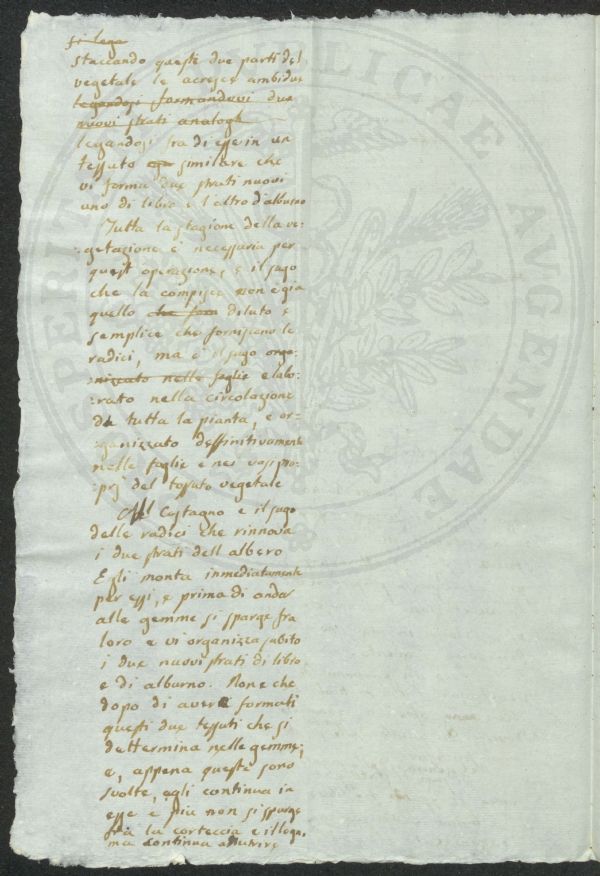 si lega
staccando queste due parti del
vegetale le acresce ambidue
legandosi formandovi due
nuovi strati analoghi
legandosi fra di esse in un
tessuto similare che
vi forma due strati nuovi
uno di libro e l'altro d'alburno
Tutta la stagione della ve-
getazione è necessaria per
quest operazione, e il sugo
che la compisce non è già
quello che diluto e
semplice che forniscono le
radici, ma è il sugo orga-
nizzato nelle foglie elabo-
rato nella circolazione
di tutta la pianta, e or-
ganizzato deffinitivamente
nelle foglie e nei vasi pro-
prj del tessuto vegetale
Nel Castagno è il sugo
delle radici che rinnova
i due strati dell albero
Egli monta inmediatamente
per essi, e prima di andar
alle gemme si sparge fra
loro e vi organizza subito
i due nuovi strati di libro
e di alburno. Non è che
dopo di avere formati
questi due tessuti che si
dettermina nelle gemme;
e, appena queste sono
svolte, egli continua in
esse e più non si sparge
fra la corteccia e il legn.
ma continua a nutrire
PERITAT PUBLICAE AUGENDAE